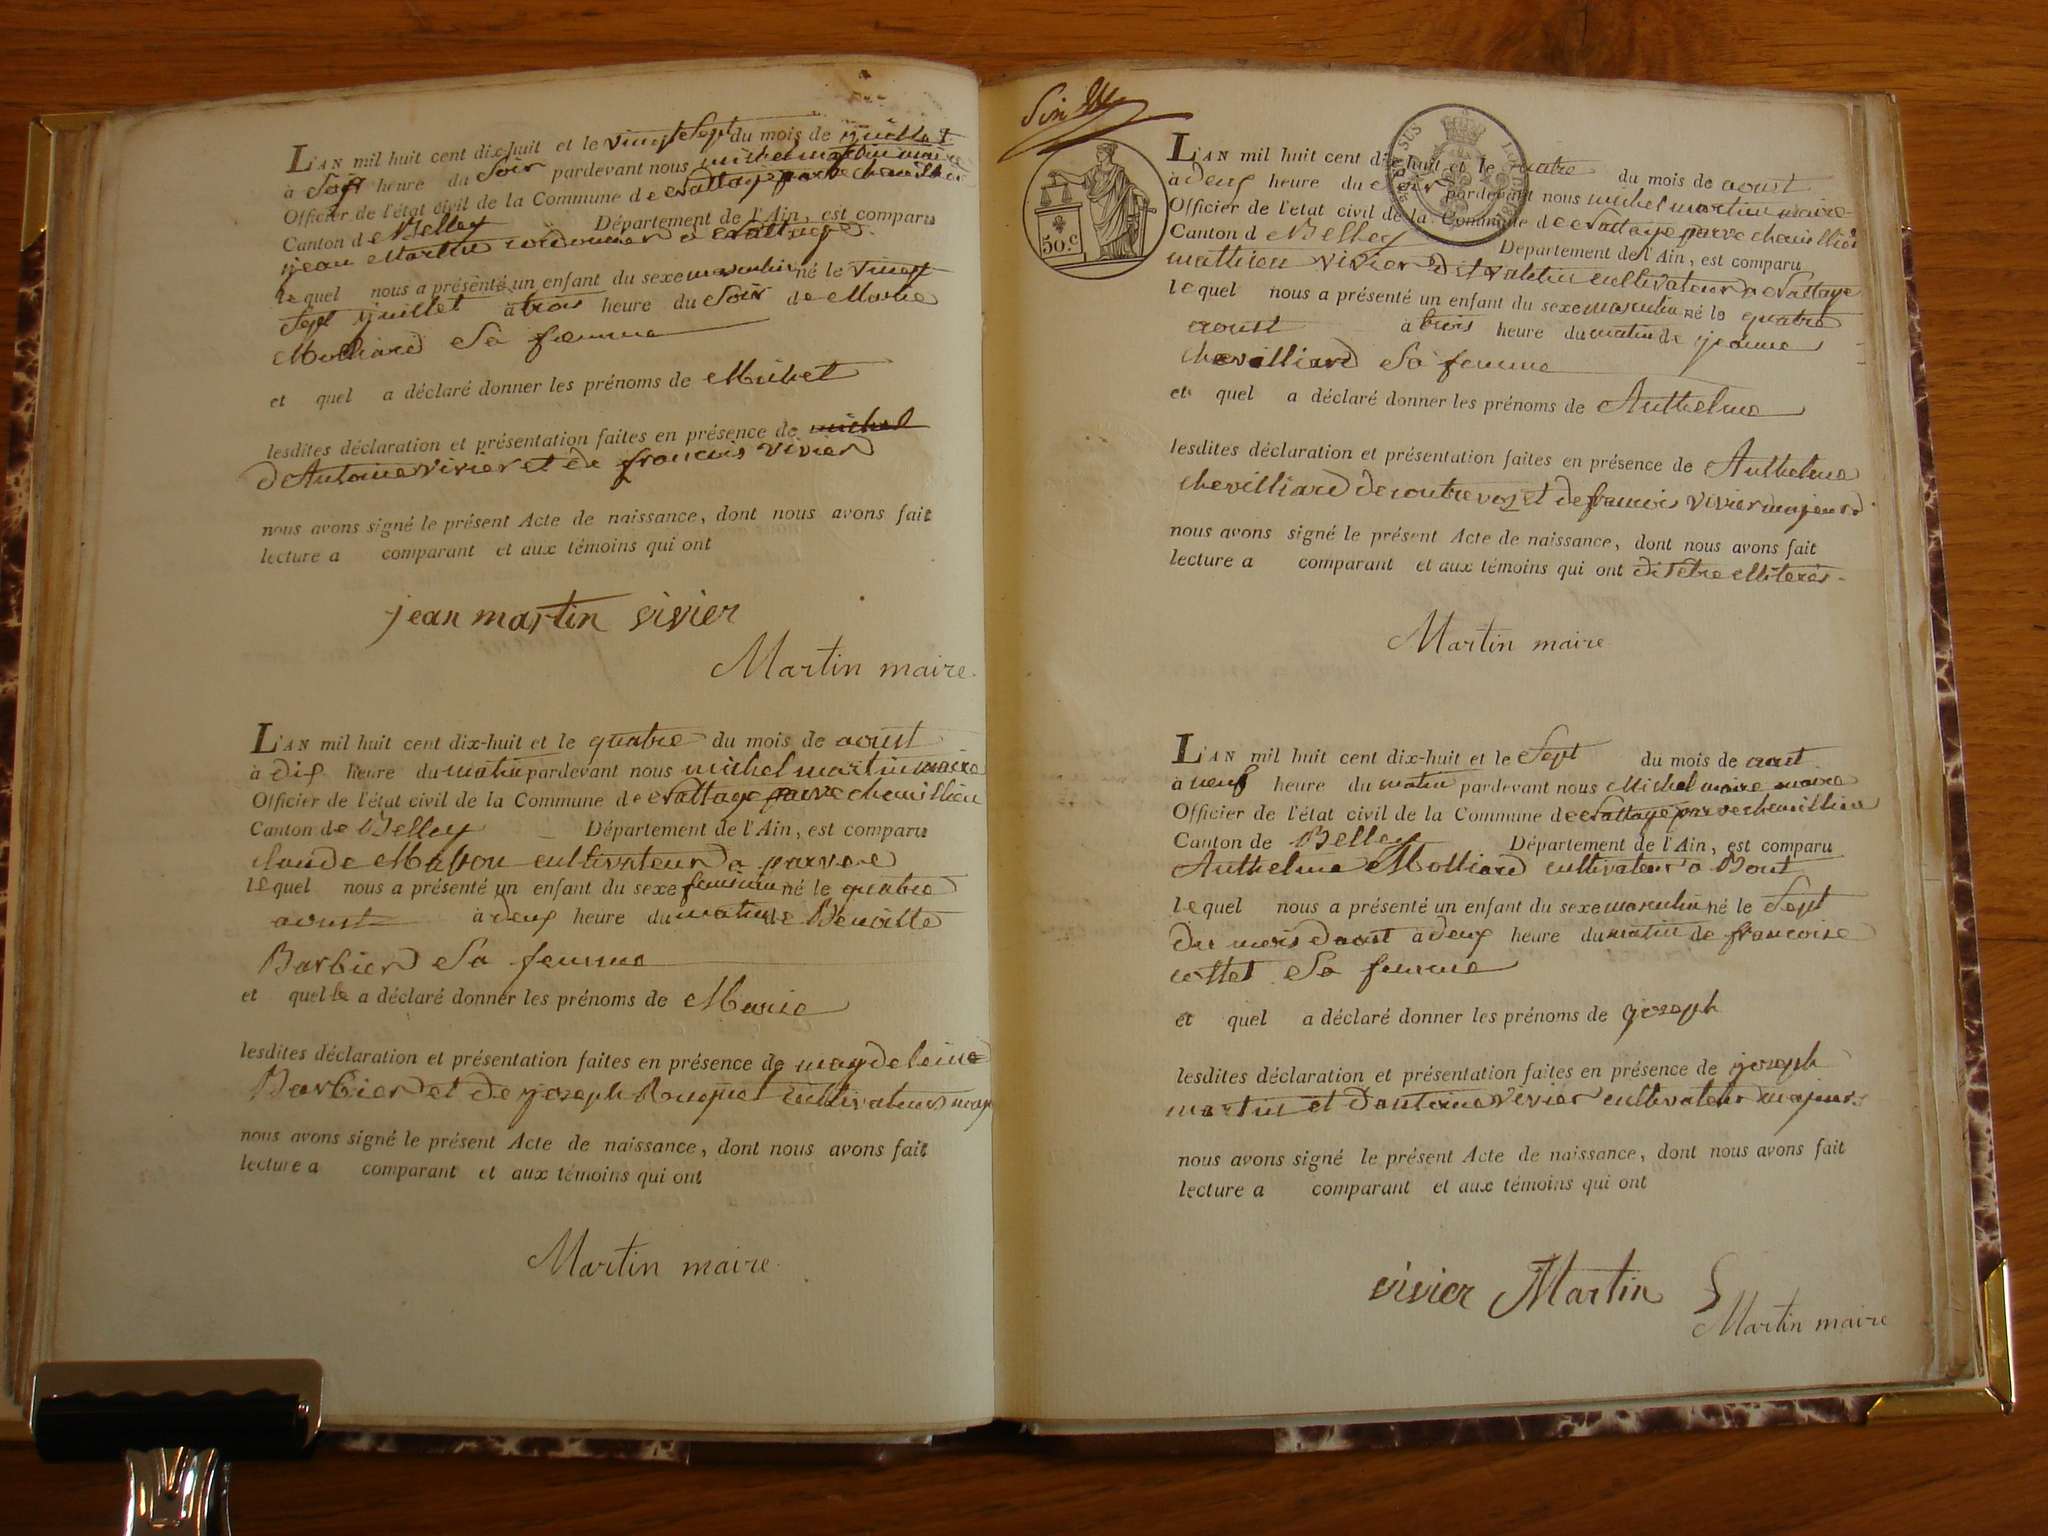 L'AN mil huit cent dix-huit et le vingt Sept du mois de juillet
à Sept heure du Soir pardevant nous michel martin maire
Officier de l'état civil de la Commune de
Canton de Belley Département de l'Ain, est comparu
jean Martin cordonnier a
lequel nous a présenté un enfant du sexe masculin né le vingt
Sept juillet à trois heure du Soir de Marie
Molliard Sa femme
et quel a déclaré donner les prénoms de Michel
lesdites déclaration et présentation faites en présence de michel
d'Antoine vivier et de francois vivier
nous avons signé le présent Acte de naissance, dont nous avons fait
lecture a comparant et aux témoins qui ont
jean martin vivier
Martin maire
L'AN mil huit cent dix-huit et le quatre du mois de aoust
à dix heure du matin pardevant nous michel martin maire
Officier de l'état civil de la Commune de
Canton de Belley Département de l'Ain, est comparu
claude cultivateur a parve
lequel nous a présenté un enfant du sexe feminin né le quatre
aoust à deux heure du matin de Benoitte
Barbier Sa femme
et quelle a déclaré donner les prénoms de Marie
lesdites déclaration et présentation faites en présence de magdeleine
Barbier et de joseph cultivateurs maj
nous avons signé le présent Acte de naissance, dont nous avons fait
lecture a comparant et aux témoins qui ont
Martin maire
50.c
L'AN mil huit cent dix-huit et le quatre du mois de aoust
à deux heure du Soir pardevant nous michel martin maire
Officier de l'état civil de la Commune de
Canton d Belley Département de l'Ain, est comparu
mathieu vivier dit valetin cultivateur a
lequel nous a présenté un enfant du sexe masculin né le quatre
aoust à trois heure du matin de jeanne
chevilliard Sa femme
et quel a déclaré donner les prénoms de Anthelme
lesdites déclaration et présentation faites en présence de Anthelme
chevilliard de contrevoz et de francois vivier majeurs
nous avons signé le présent Acte de naissance, dont nous avons fait
lecture a comparant et aux témoins qui ont dit etre illiterés
Martin maire
L'AN mil huit cent dix-huit et le Sept du mois de aout
à neuf heure du matin pardevant nous Michel maire maire
Officier de l'état civil de la Commune de
Canton de Belley Département de l'Ain, est comparu
Anthelme Molliard cultivateur a Bont
lequel nous a présenté un enfant du sexe masculin né le Sept
du mois daout à deux heure du matin de francoise
collet Sa femme
et quel a déclaré donner les prénoms de joseph
lesdites déclaration et présentation faites en présence de joseph
martin et dantoine vivier cultivateur majeurs
nous avons signé le présent Acte de naissance, dont nous avons fait
lecture a comparant et aux témoins qui ont
vivier Martin
Martin maire